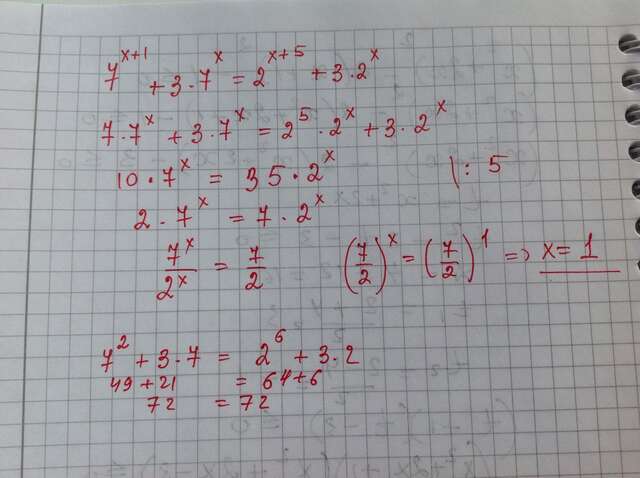 7^{x+1} + 3·7^x = 2^{x+5} + 3·2^x
7·7^x + 3·7^x = 2^5·2^x + 3·2^x
10·7^x = 35·2^x |: 5
2·7^x = 7·2^x
7^x/2^x = 7/2 (7/2)^x = (7/2)^1 => x = 1
7^2 + 3·7 = 2^6 + 3·2
49 + 21 = 64 + 6
72 = 72